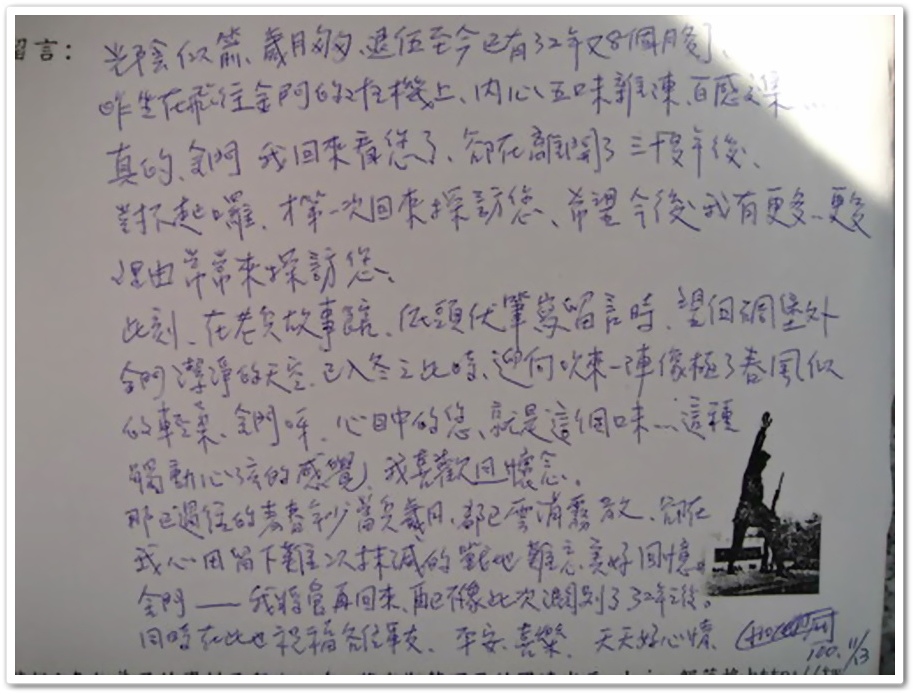 留言：
光陰似箭、歲月匆匆、退伍至今已有32年又8個月多了、
昨坐在飛往金門的班機上、內心五味雜陳、百感交集……
真的、金門 我回來看您了、卻在離開了三十多年後、
對不起囉、才第一次回來探訪您、希望今後我有更多…更多
理由常常來探訪您、
此刻、在老兵故事館、低頭伏筆寫留言時、望向碉堡外
金門潔淨的天空、已入冬之此時、迎向吹來一陣像極了春風似
的輕柔、金門呀、心目中的您、就是這個味…這種
觸動心弦的感覺、我喜歡回懷念。
那已過往的青春年少當兵歲月、都已雲消霧散、卻在
我心田留下難以抹滅的 難忘美好回憶。
金門——我將會再回來、 不像此次 別了32年之後。
同時在此也祝福各位軍友、平安、喜樂、天天好心情、
100.11/13